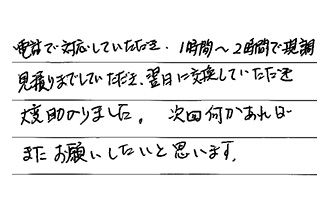 電話で対応していただき、1時間〜2時間で現調
見積りまでしていただき、翌日に交換していただき
大変助かりました。 次回何かあれば
またお願いしたいと思います。